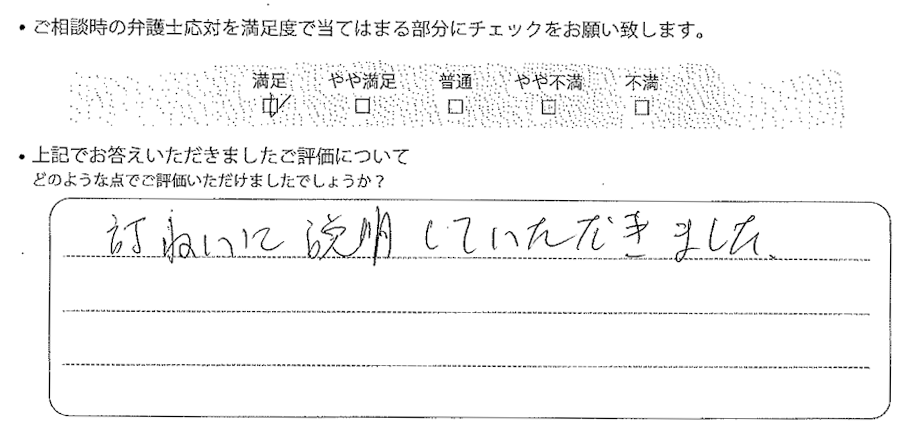 ・ご相談時の弁護士応対を満足度で当てはまる部分にチェックをお願い致します。
満足 やや満足 普通 やや不満 不満
・上記でお答えいただきましたご評価について
どのような点でご評価いただけましたでしょうか？
訂ねいに説明していただきました、